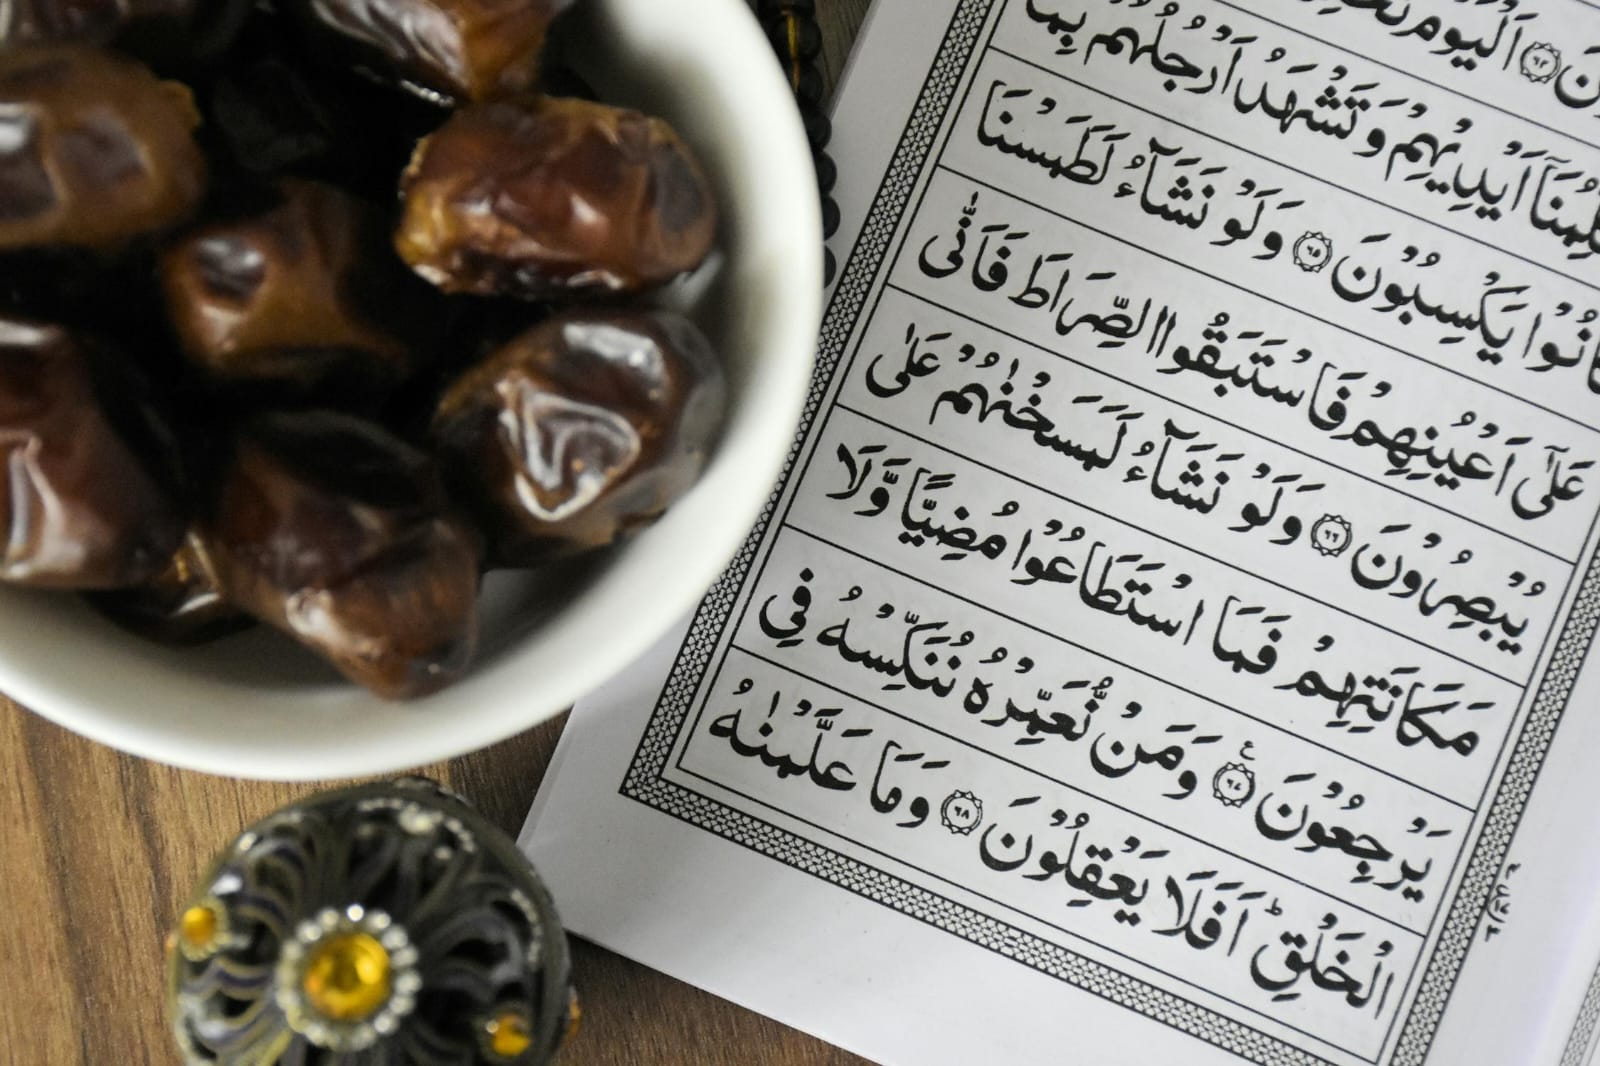 اَلْيَوْمَ
اَيْدِيْهِمْ وَتَشْهَدُ اَرْجُلُهُمْ بِمَا
يَكْسِبُوْنَ ﴿۶۵﴾ وَلَوْ نَشَآءُ لَطَمَسْنَا
عَلٰٓى اَعْيُنِهِمْ فَاسْتَبَقُوا الصِّرَاطَ فَاَنّٰى
يُبْصِرُوْنَ ﴿۶۶﴾ وَلَوْ نَشَآءُ لَمَسَخْنٰهُمْ عَلٰى
مَكَانَتِهِمْ فَمَا اسْتَطَاعُوْا مُضِيًّا وَّلَا
يَرْجِعُوْنَ ﴿۶۷﴾ ع وَمَنْ نُّعَمِّرْهُ نُنَكِّسْهُ فِى
الْخَلْقِ ؕ اَفَلَا يَعْقِلُوْنَ ﴿۶۸﴾ وَمَا عَلَّمْنٰهُ